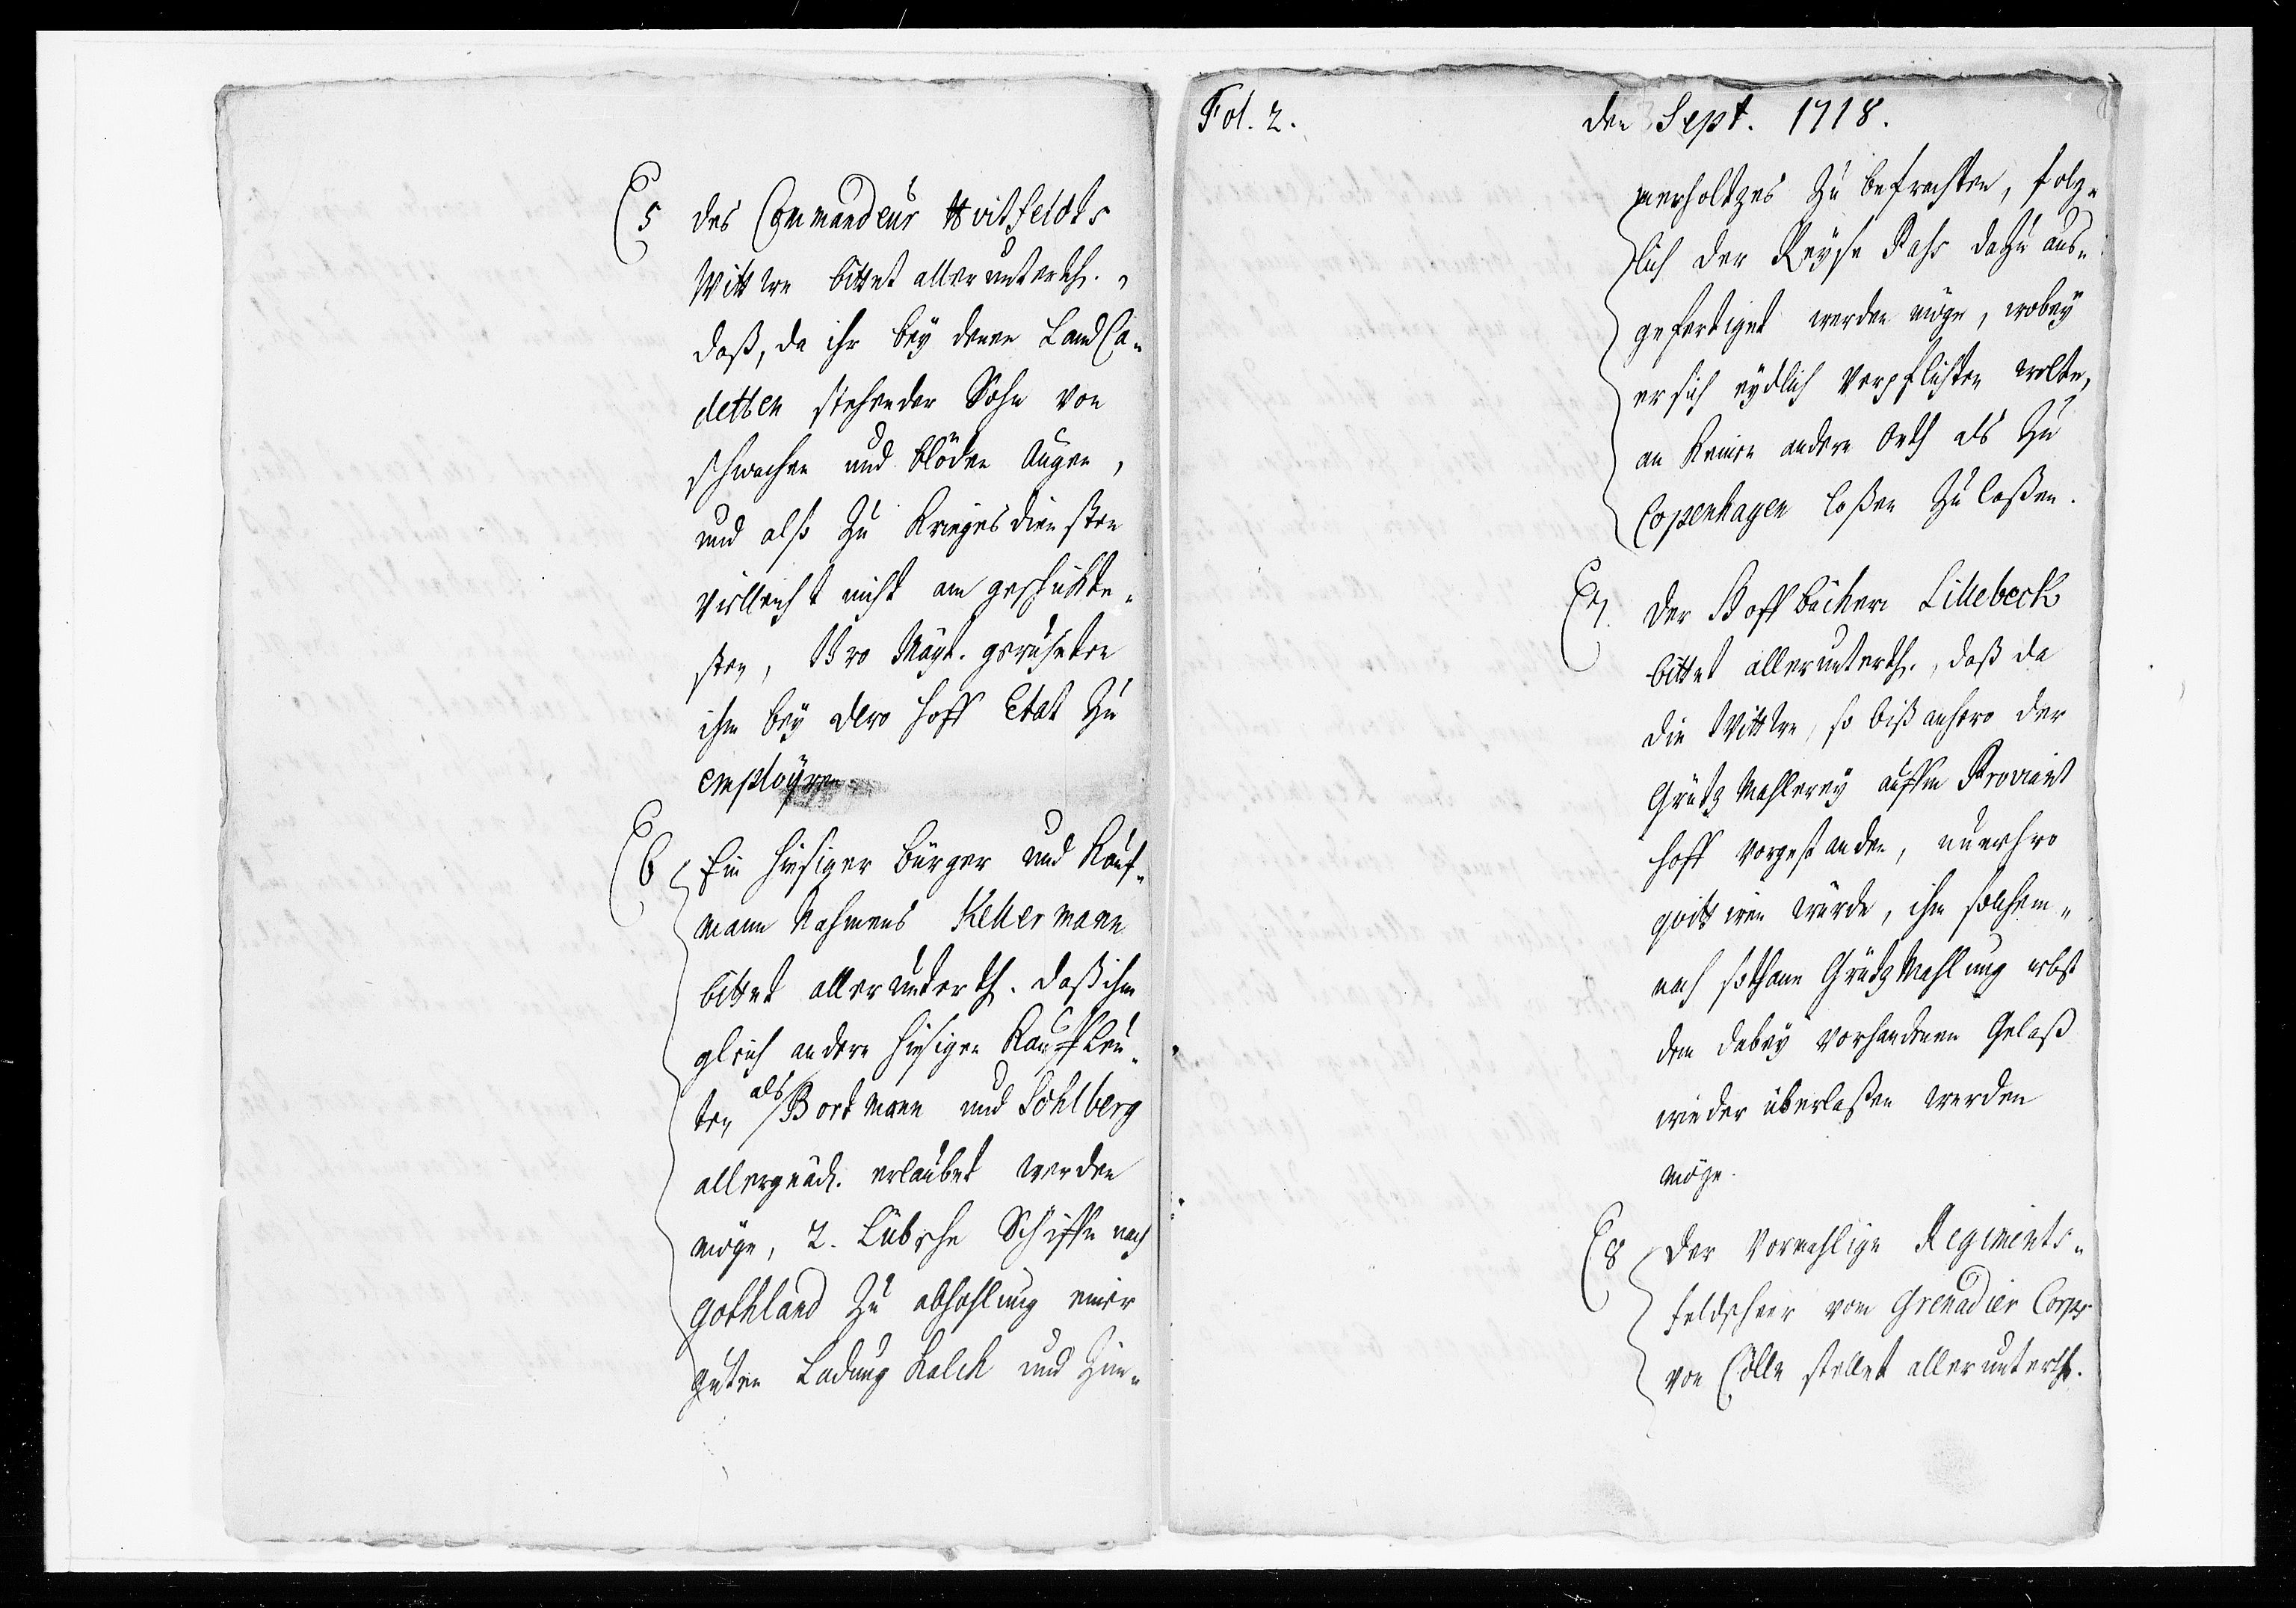 5 des Commandeur Hvitfeldts
Wittwe bittet allerunterth.,
daß, da ihr bey denen Land Ca-
detten stehender Sohn von
schwachen und blöden Augen,
und alß zu Kriegesdiensten
villeicht nicht am geschickte-
sten, Ihro Mayt. geruheten
ihn bey dero Hoff Etat zu
employren.
6 Ein hiesiger Bürger und Kauf-
mann Nahmens Kellermann
bittet allerunterth. daß ihm
gleich andern hiesigen Kauffleu-
ten, als Bortmann und Sohlberg
allergnäd. erlaubet werden
möge, 2. Lübsche Schiffe nach
Gothland zu abhohlung einer
guten Ladung Kalck und Zim-
Fol. 2.
den Sept. 1718.
merholtzes zu befrachten, folg-
lich der Reyse Pass dazu aus-
gefertiget werden möge, wobey
er sich eydlich verpflichten wolte,
an keinen andern Orth als zu
Copenhagen loßen zu laßen.
7. Der Hoff bäcker Lillebeck
bittet allerunterth., daß da
die Wittwe, so bißanhero der
Grütz Mahlerey auffm Proviant
Hoff vorgestanden, nunmehro
quittiren würde, ihm solchem-
nach sothane Grütz Mahlung nebst
dem dabey vorhandenen Gelaß
wieder überlaßen werden
möge.
8 Der vormahlige Regiments-
feldscheer vom Grenadier Corps
von Cölln stellet allerunterth.